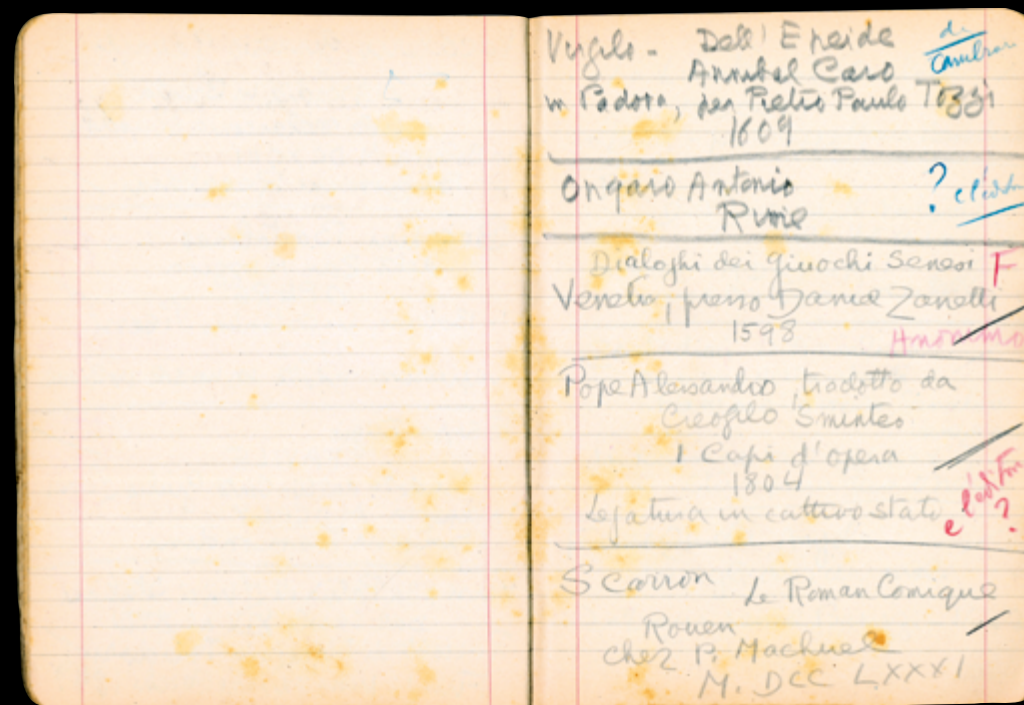 Virgilio - Dell' Eneide
di
Annibal Caro
in Padova, per Pietro Paulo Tozzi
1609
Ongaro Antonio
Rime
?
Dialoghi dei giuochi Senesi
F
Venetia, presso Daniel Zanetti
1598
Anonimo
Pope Alessandro, tradotto da
Creofilo Sminteo
I Capi d'opera
1804
Legatura in cattivo stato
e l'éditeur
?
Scarron Le Roman Comique
Rouen
chez P. Machuel
M. DCC LXXXI